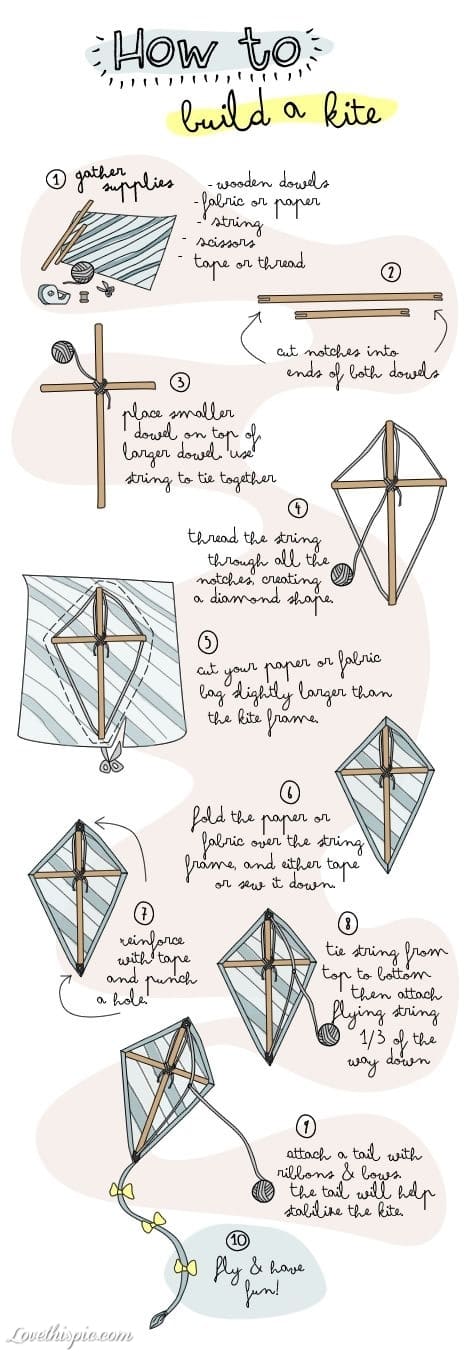 How to
build a kite
1 gather
supplies
- wooden dowels
- fabric or paper
- string
- scissors
- tape or thread
2
cut notches into
ends of both dowels
3
place smaller
dowel on top of
larger dowel. use
string to tie together
4
thread the string
through all the
notches, creating
a diamond shape.
5
cut your paper or fabric
bag slightly larger than
the kite frame.
6
fold the paper or
fabric over the string
frame, and either tape
or sew it down.
7
reinforce
with tape
and punch
a hole.
8
tie string from
top to bottom
then attach
flying string
1/3 of the
way down
9
attach a tail with
ribbons & bows.
the tail will help
stabilize the kite.
10
fly & have
fun!
Lovethispic.com